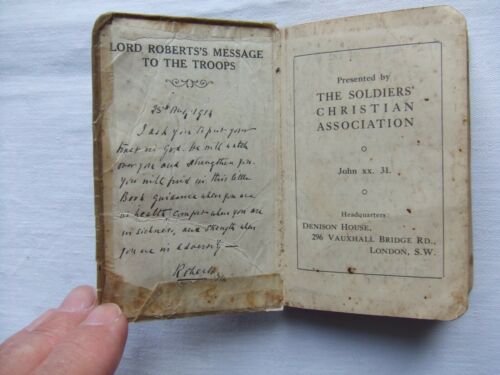 LORD ROBERTS'S MESSAGE
TO THE TROOPS
25th Aug. 1914
I ask you to put your
trust in God. He will watch
over you and strengthen you.
You will find in this little
Book guidance when you are
in health, comfort when you are
in sickness, and strength when
you are in adversity—
Roberts
Presented by
THE SOLDIERS'
CHRISTIAN
ASSOCIATION
John xx. 31.
Headquarters:
DENISON HOUSE,
296 VAUXHALL BRIDGE RD.,
LONDON, S.W.